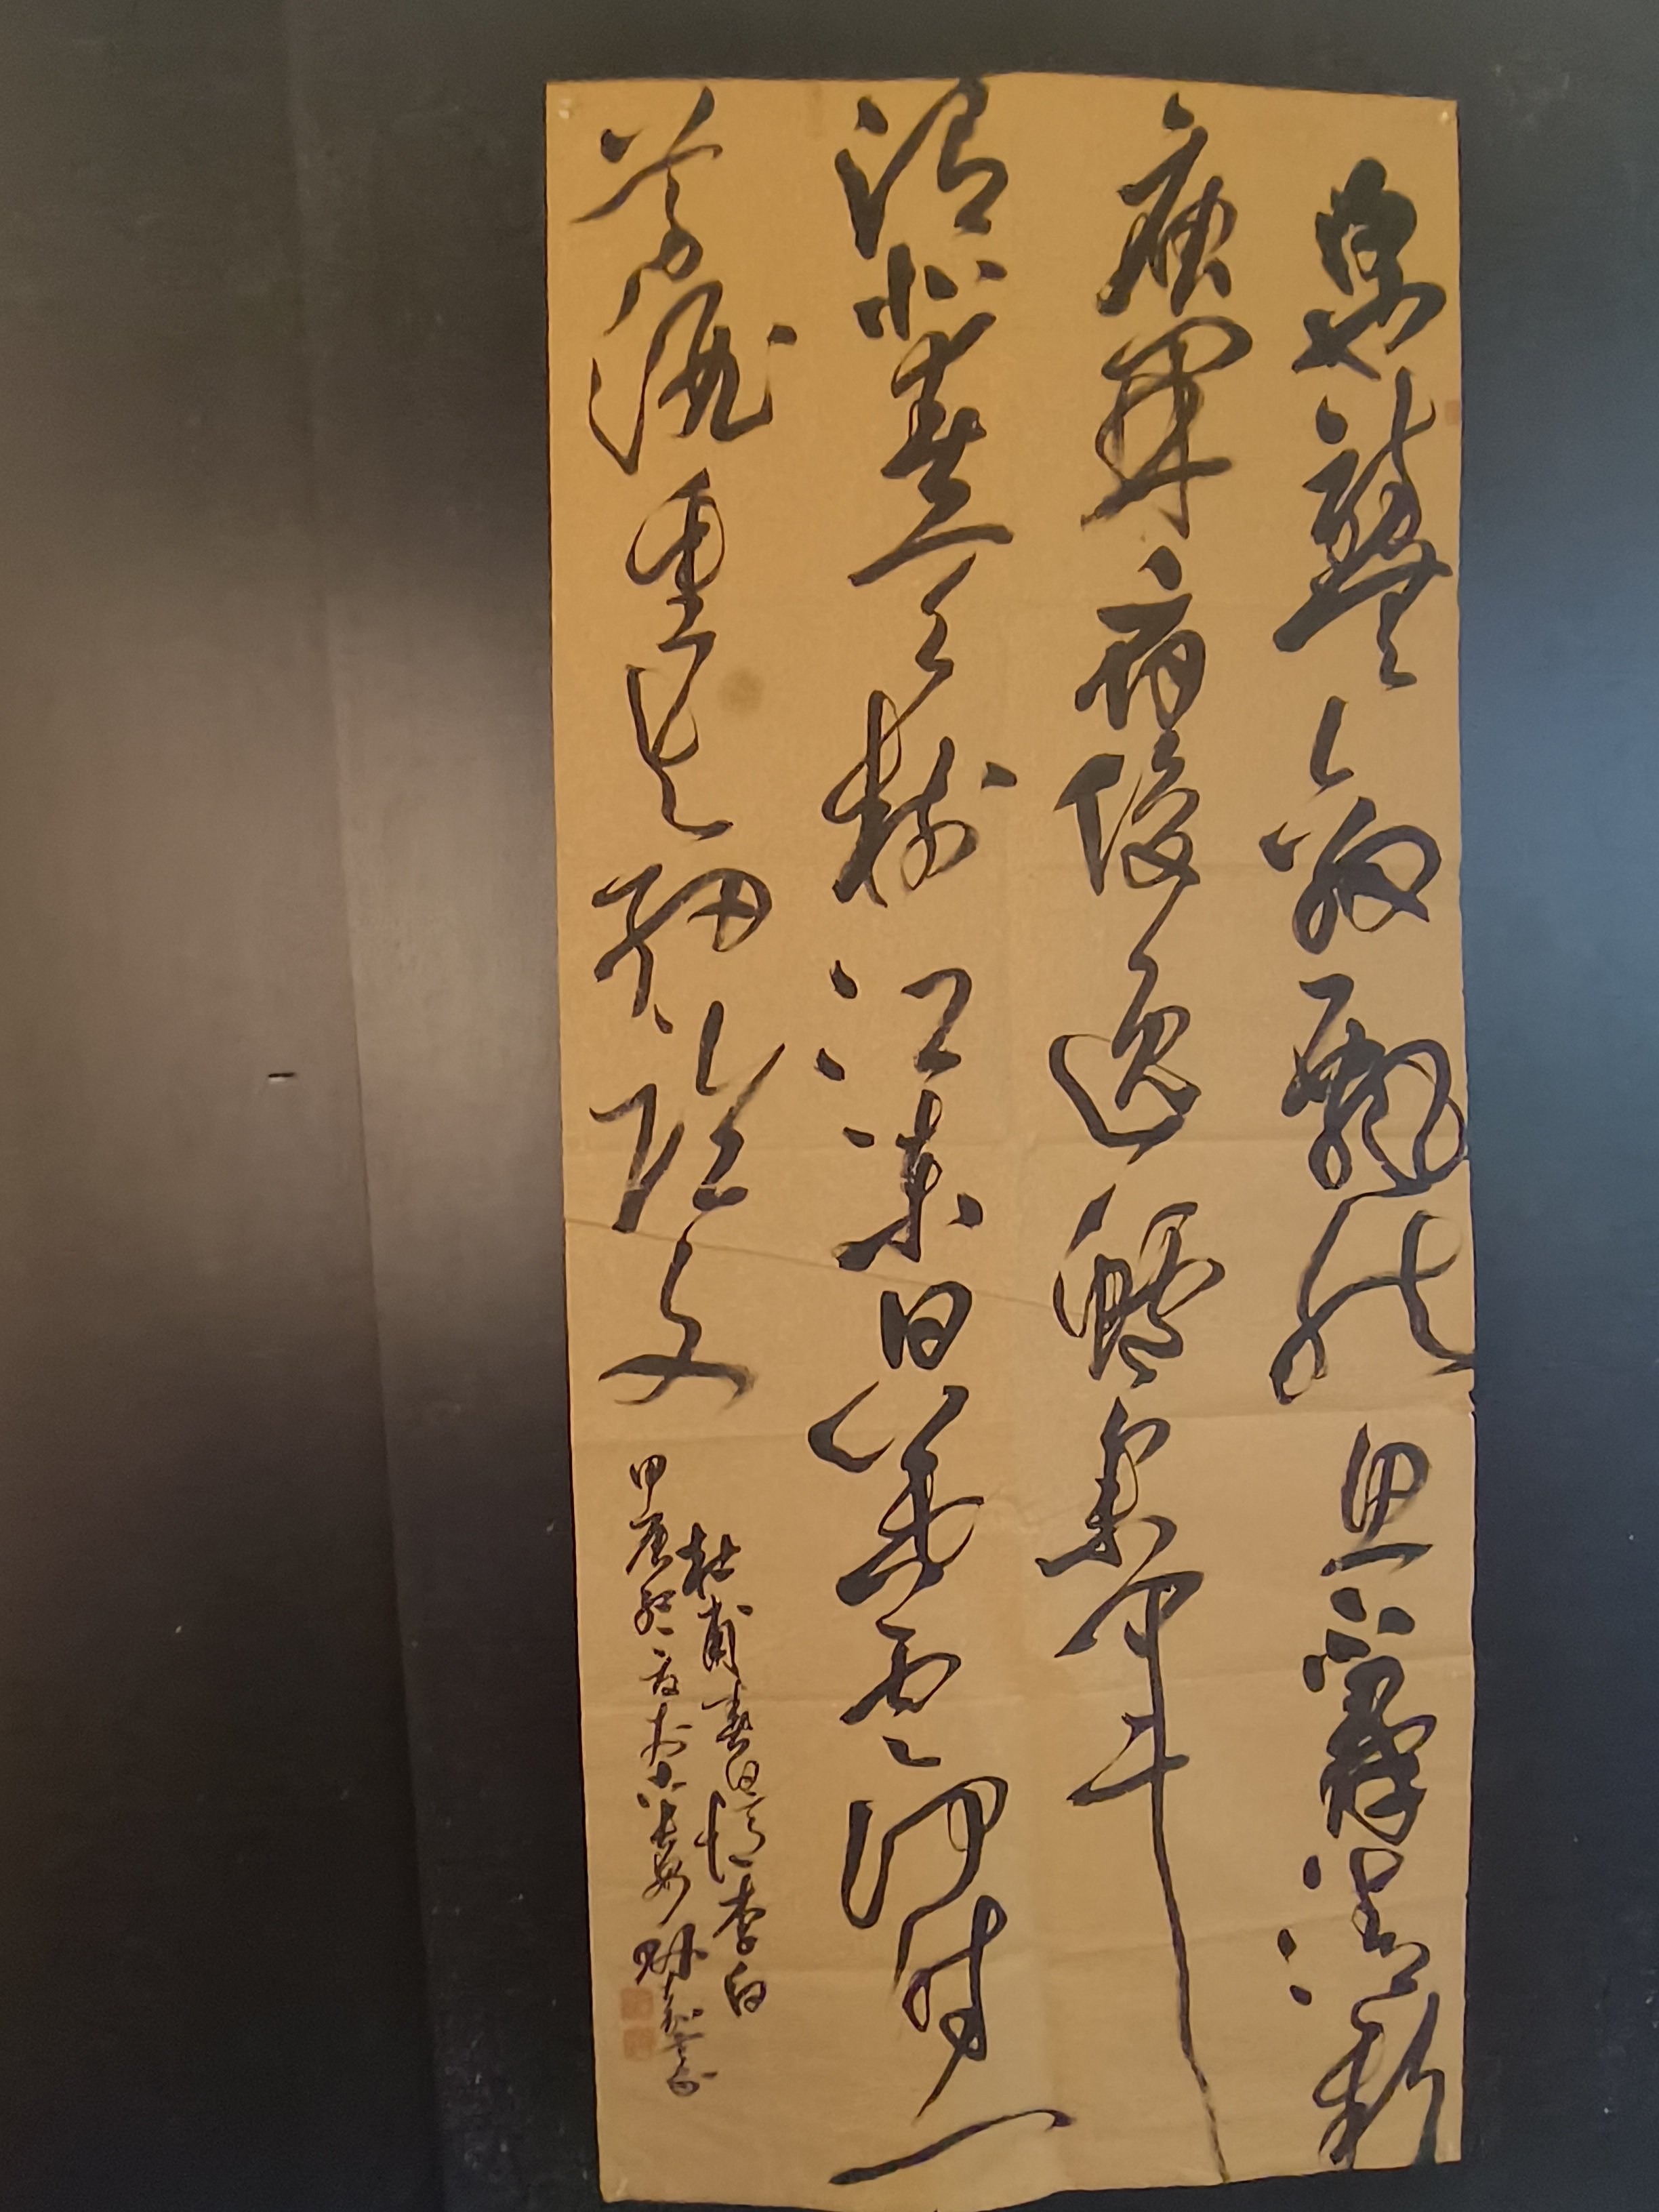 白也詩無敵飄然思不羣清新
庾開府俊逸鮑參軍
渭北春天樹江東日暮雲何時一
尊酒重與細論文
杜甫春日憶李白
甲辰